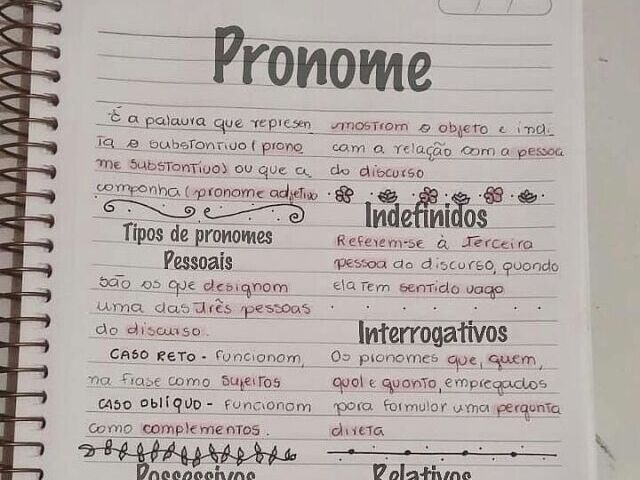 Pronome
É a palavra que represen
ta o substantivo (prono
me substantivo) ou que a
companha (pronome adjetivo
Tipos de pronomes
Pessoais
são os que designam
uma das três pessoas
do discurso.
CASO RETO - funcionam,
na frase como sujeitos
CASO OBLÍQUO - funcionam
como complementos.
Possessivos
mostram o objeto e indi
cam a relação com a pessoa
do discurso
Indefinidos
Referem-se à Terceira
pessoa do discurso, quando
ela tem sentido vago
Interrogativos
Os pronomes que, quem,
qual e quanto, empregados
para formular uma pergunta
direta
Relativos